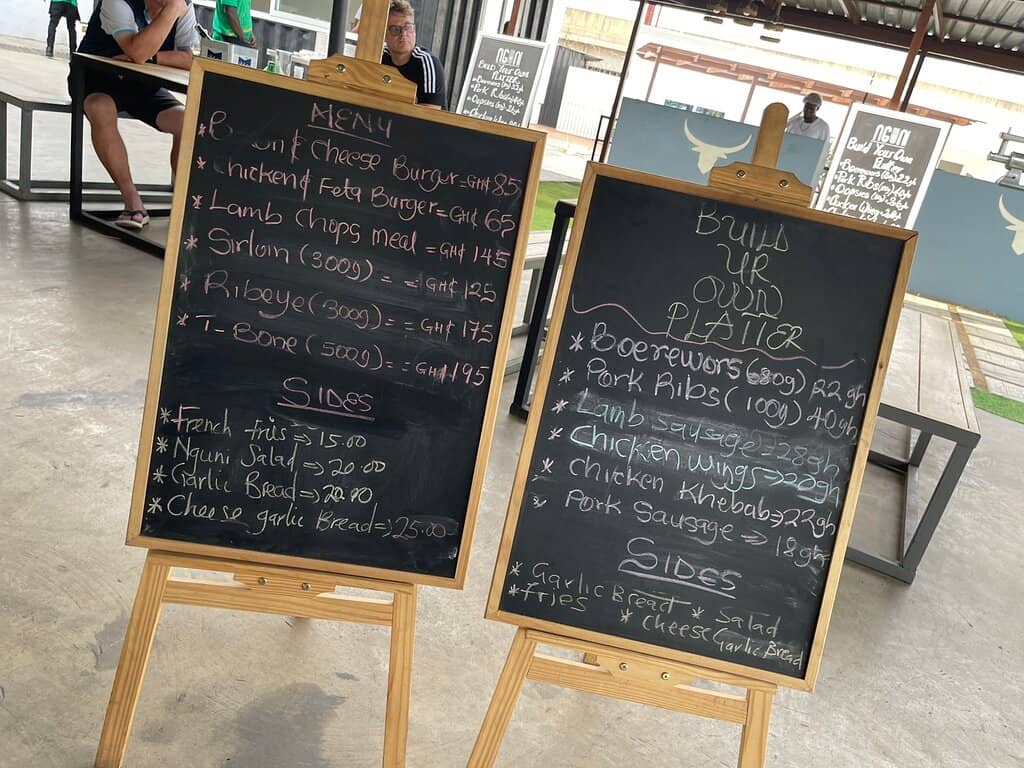 MENU
& Cheese Burger = GH¢ 85
* Chicken & Feta Burger = GH¢ 65
* Lamb Chops meal = GH¢ 145
* Sirloin (300g) = = GH¢ 125
* Ribeye (300g) = = GH¢ 175
* T-Bone (500g) = = GH¢ 195
SIDES
* French fris => 15.00
* Nguni Salad => 20.00
* Garlic Bread => 20.00
* Cheese garlic Bread => 25.00
BUILD
UR
OWN
PLATTER
* Boerewors (80g) 22gh
* Pork Ribs (100g) 40gh
* Lamb Sausage 28gh
* Chicken Wings =>
* Chicken Khebab => 22gh
Pork Sausage => 18gh
SIDES
* Garlic Bread * Salad
* fries * Cheese Garlic Bread
NGUNI
Build Your Own
Platter
Pork Ribs
NGUNI
Build Your Own
Pork Ribs